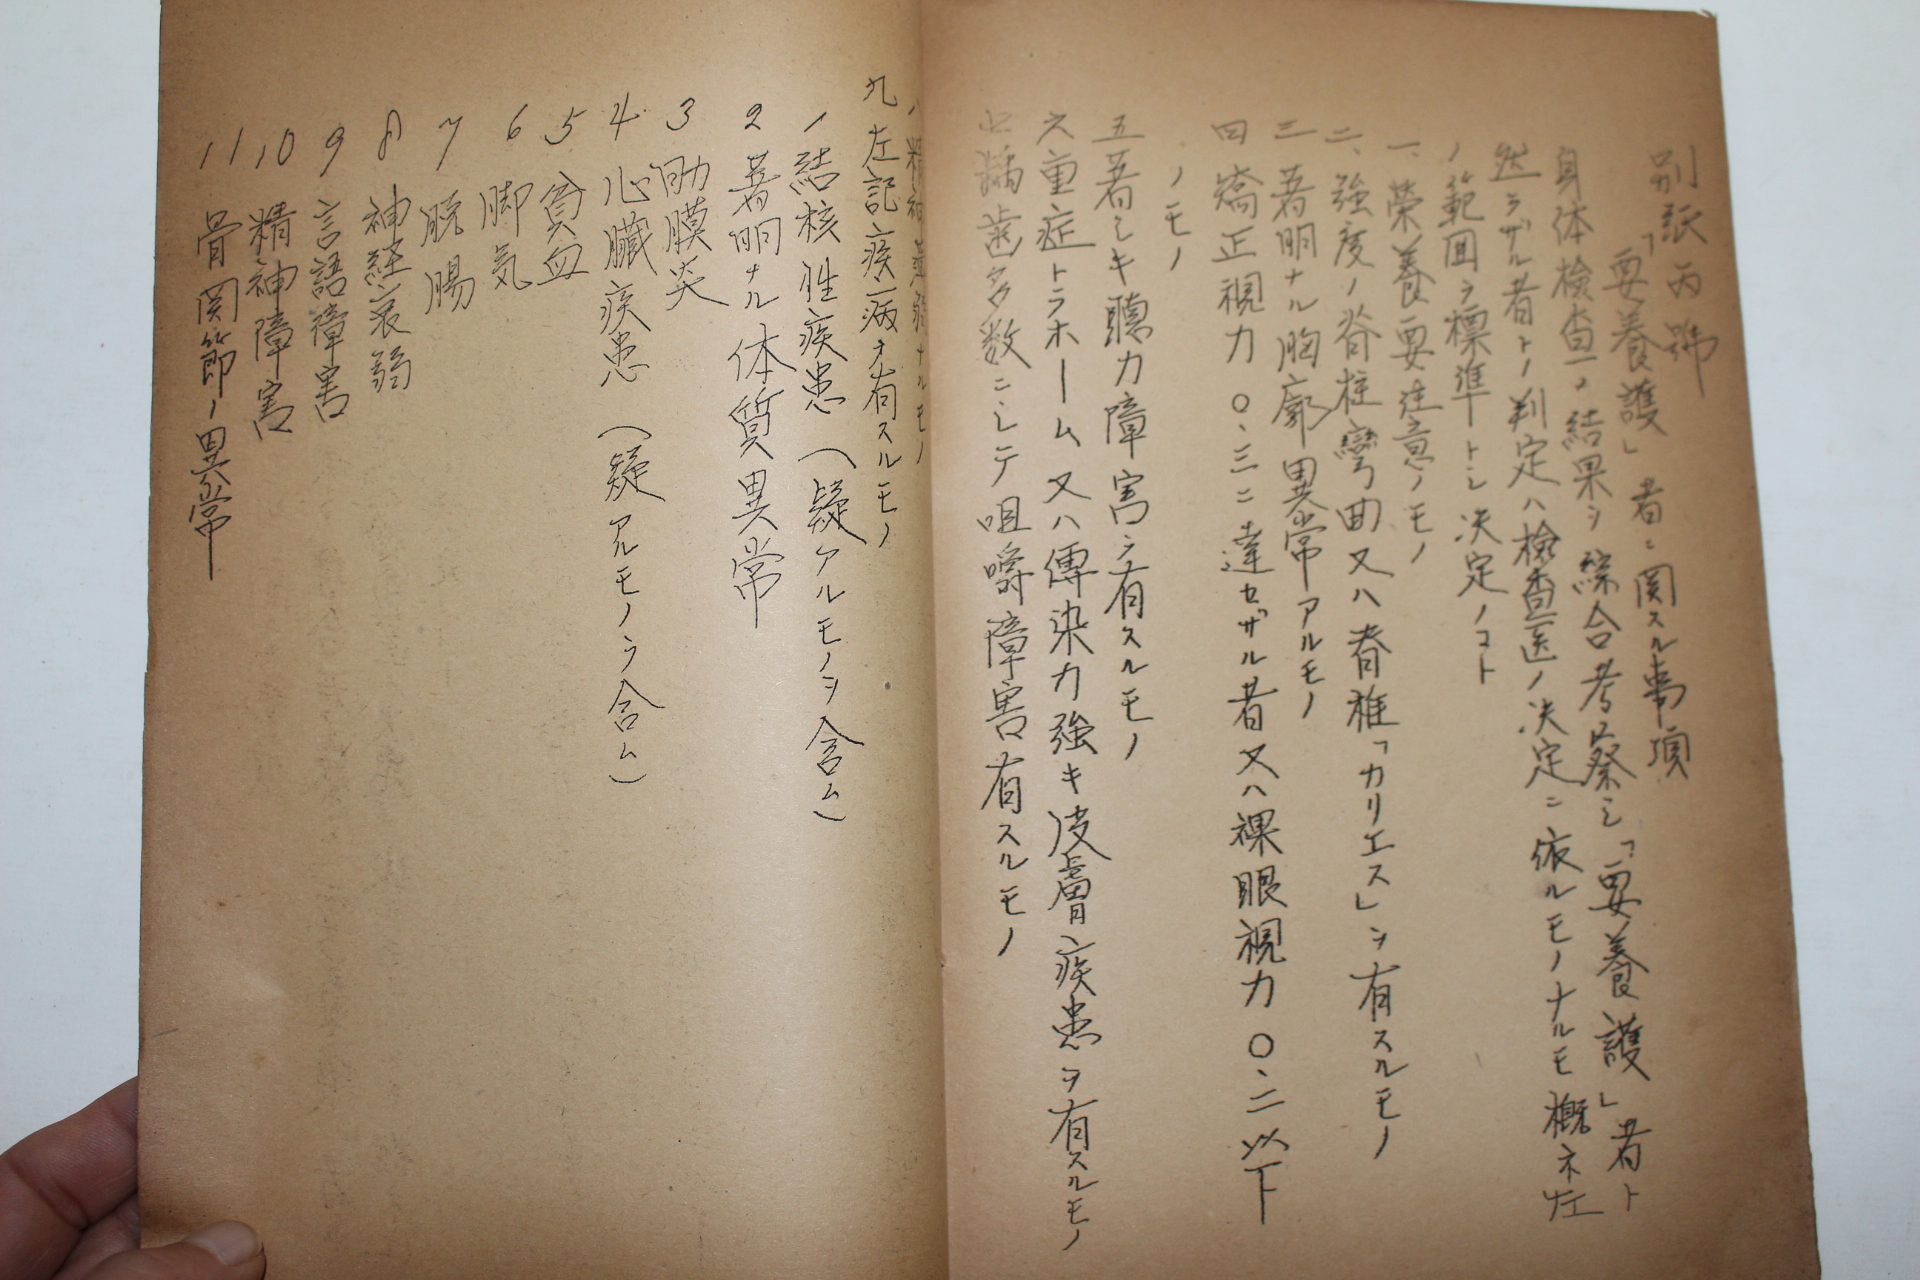 別紙丙號
「要養護」者ニ関スル事項
身体檢査ノ結果ヲ綜合考察シ「要養護」者ト
然ラザル者トノ判定ハ檢査医ノ決定ニ依ルモノナルモ概ネ左
ノ範囲ヲ標準トシ決定ノコト
一、榮養要注意ノモノ
二、強度ノ脊柱彎曲又ハ脊椎「カリエス」ヲ有スルモノ
三 著明ナル胸廓異常アルモノ
四 矯正視力〇、三ニ達セザル者又ハ裸眼視力〇、二以下
ノモノ
五 著シキ聽力障害ヲ有スルモノ
六 重症トラホーム又ハ傳染力強キ皮膚疾患ヲ有スルモノ
七 齲歯多数ニシテ咀嚼障害有スルモノ
八 精神薄弱ナルモノ
九 左記疾病ヲ有スルモノ
1 結核性疾患(疑アルモノヲ含ム)
2 著明ナル体質異常
3 肋膜炎
4 心臓疾患(疑アルモノヲ含ム)
5 貧血
6 脚気
7 脱腸
8 神経衰弱
9 言語障害
10 精神障害
11 骨関節ノ異常